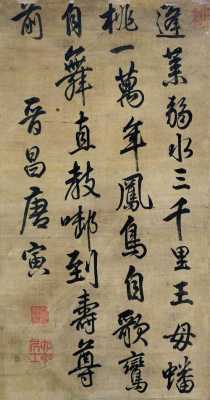 蓬萊弱水三千里王母蟠
桃一萬年鳳鳥自歌鸞
自舞直教啣到壽尊
前
晉昌唐寅